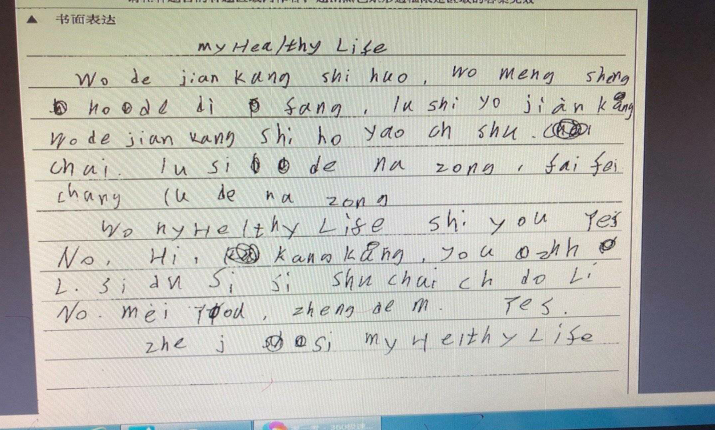 ▲ 书面表达
my Healthy Life
Wo de jian kang shi huo, Wo meng sheng
hoode di fang, lu shi yo jiàn kang
Wo de jian kang shi ho yao ch shu.
chai. lu si de na zong, fai fei
chang lu de na zong
Wo nyHelthy Life shi you Yes
No, Hi, kang kāng, you zhh
L. si an Si si shu chai ch do Li
No. mei food, zheng de m. Yes.
zhe j si my Helthy Life